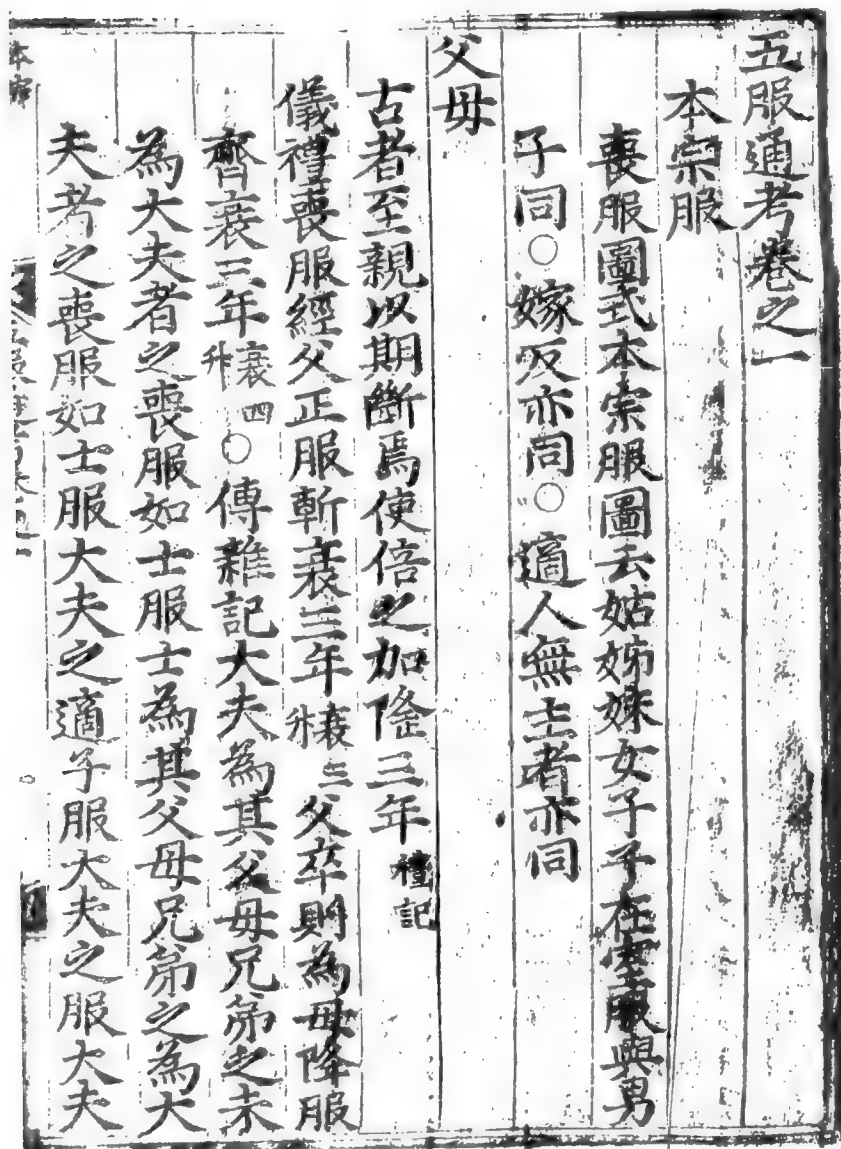 五服通考卷之一
本宗服
喪服圖式本宗服圖云姑姊妹女子子在室服與男
子同○嫁反亦同○適人無主者亦同
父母
古者至親以期斷焉使倍之加隆三年禮記
儀禮喪服經父正服斬衰三年衰三升父卒則為母降服
齊衰三年衰四升○傳雜記大夫為其父母兄弟之未
為大夫者之喪服如士服士為其父母兄弟之為大
夫者之喪服如士服大夫之適子服大夫之服大夫
本宗